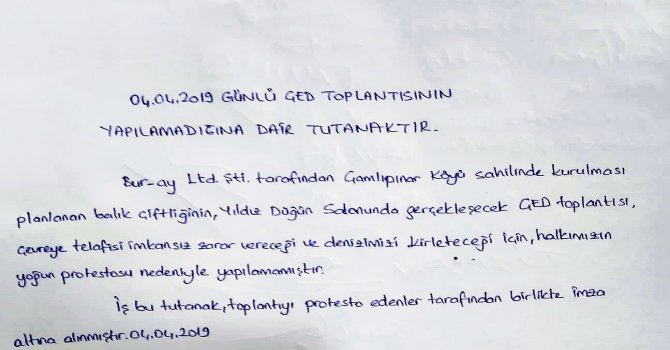 04.04.2019 GÜNLÜ ÇED TOPLANTISININ
YAPILAMADIĞINA DAİR TUTANAKTIR.
Bur-ay Ltd. Şti. tarafından Çamlıpınar Köyü sahilinde kurulması
planlanan balık çiftliğinin, Yıldız Düğün Salonunda gerçekleşecek ÇED toplantısı,
çevreye telafisi imkansız zarar vereceği ve denizimizi kirleteceği için, halkımızın
yoğun protestosu nedeniyle yapılamamıştır.
İş bu tutanak, toplantıyı protesto edenler tarafından birlikte imza
altına alınmıştır. 04.04.2019